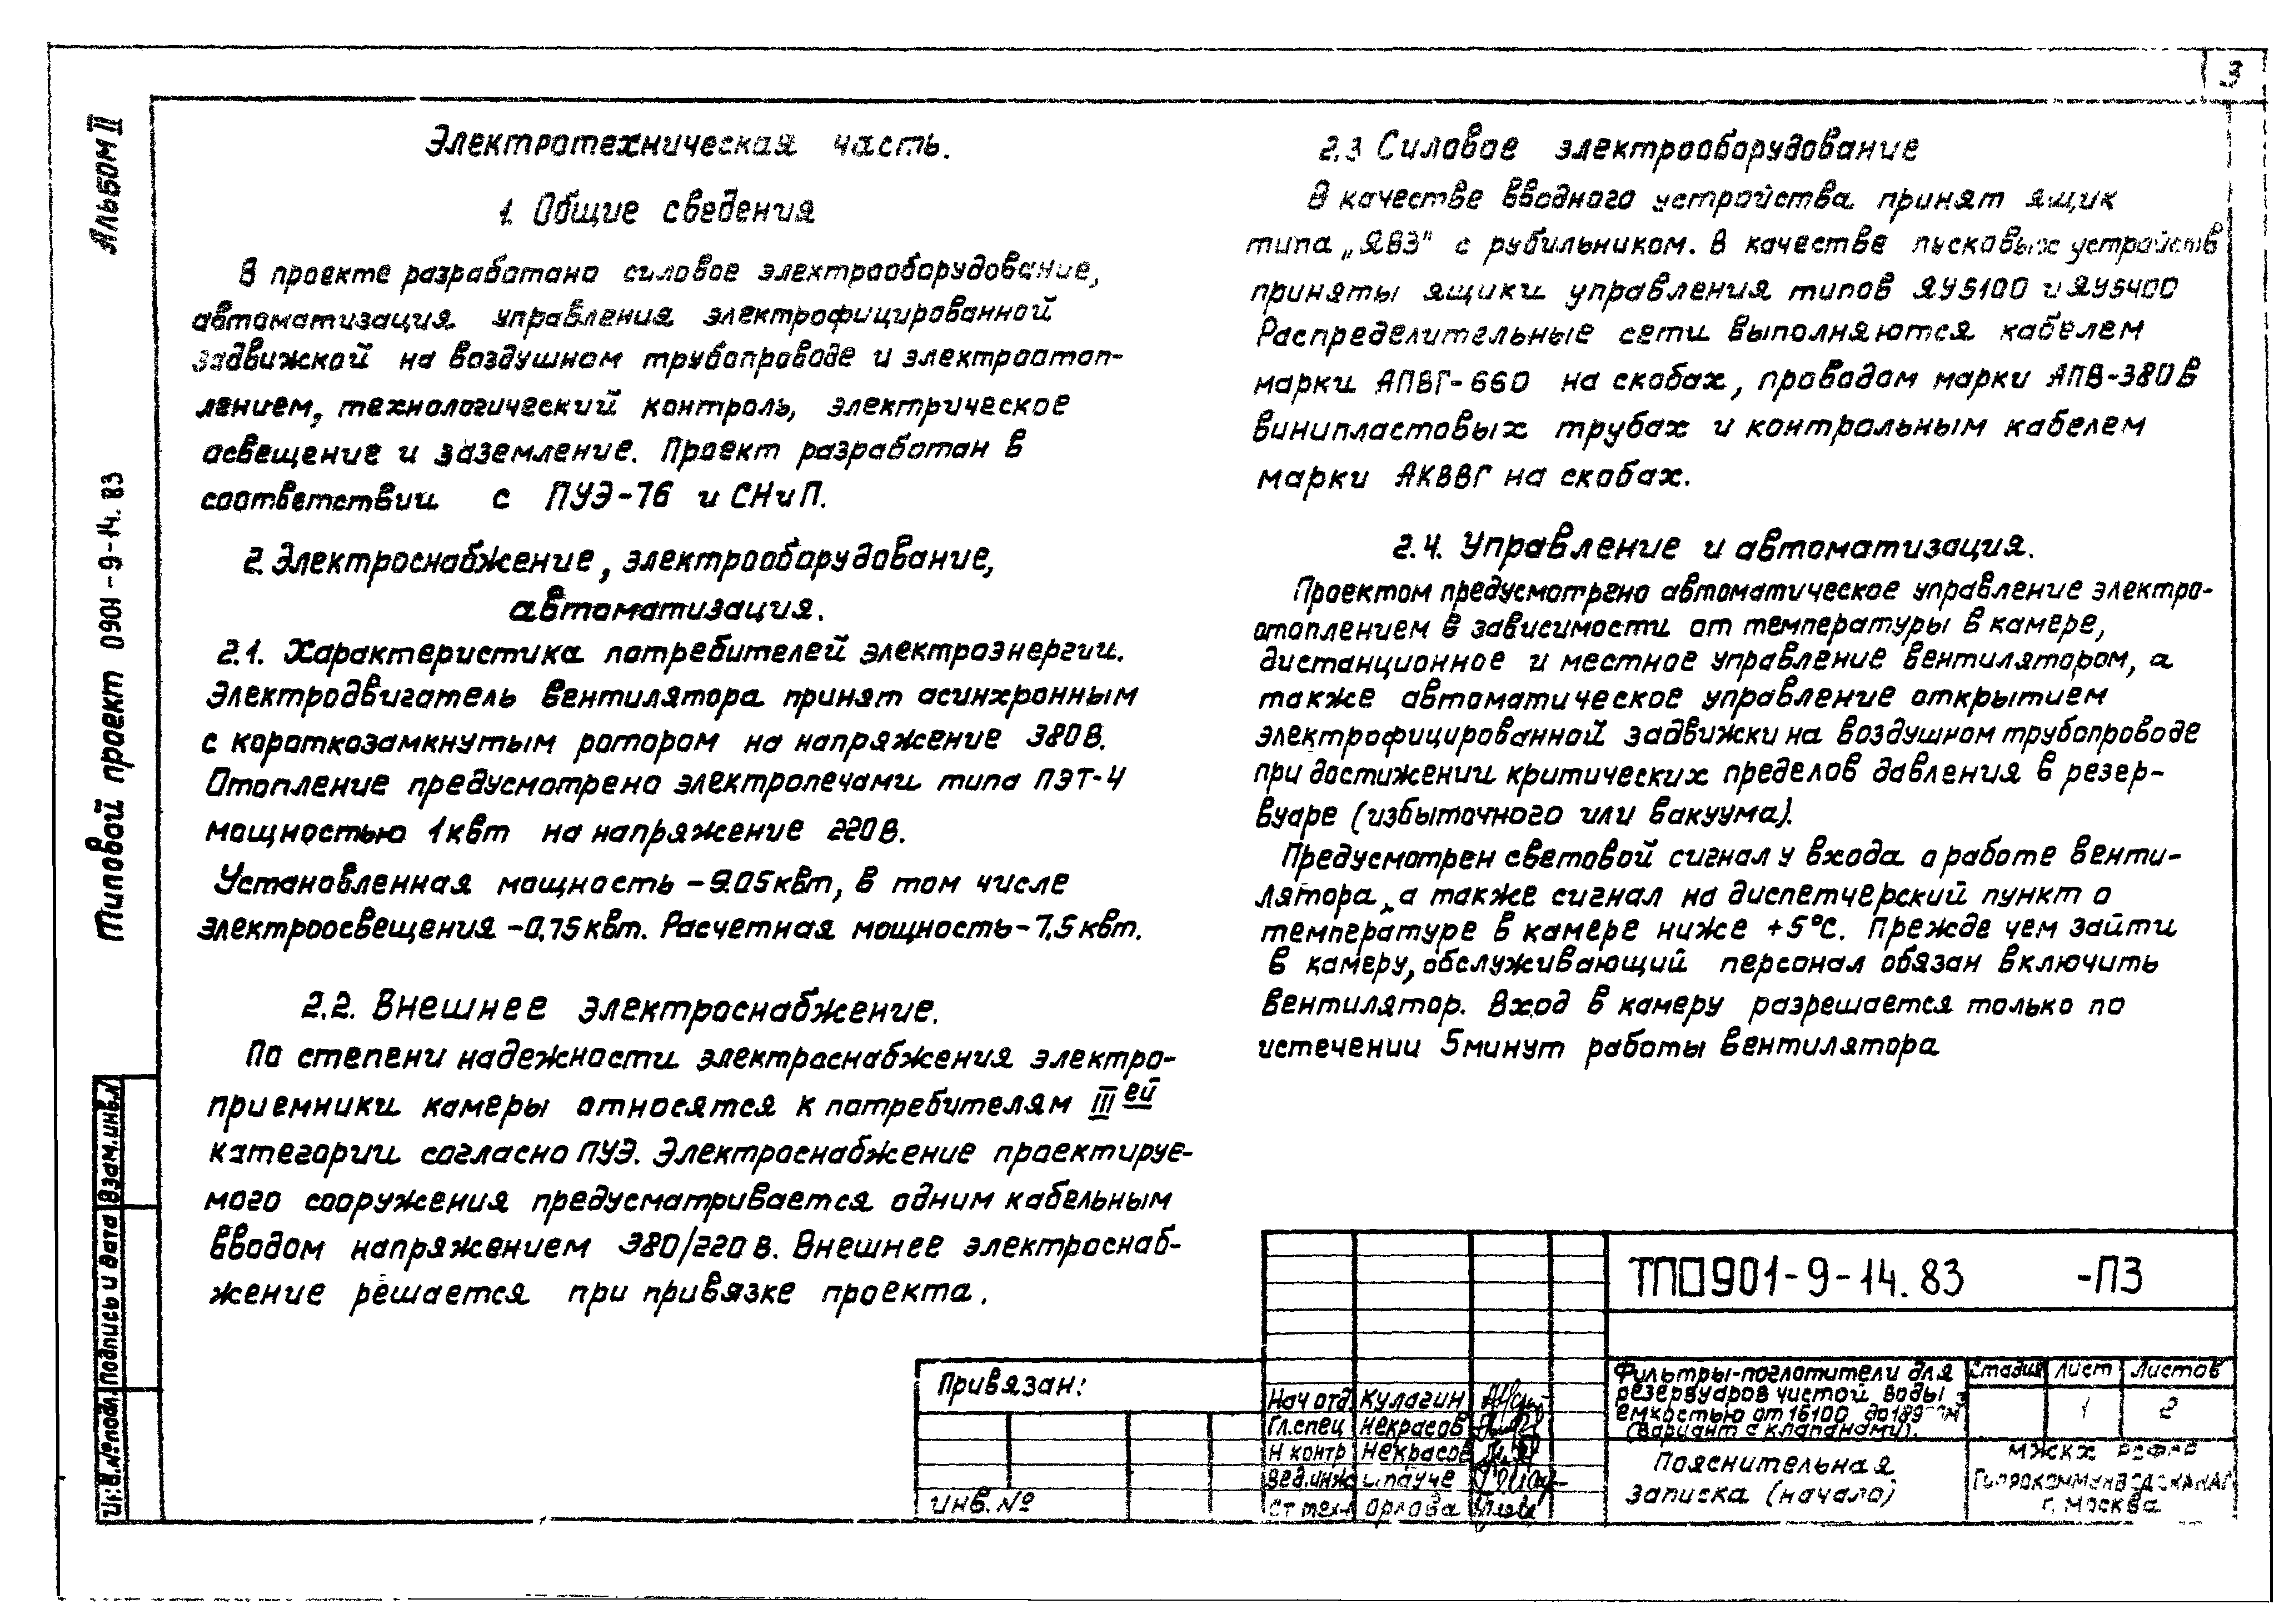 3
Альбом II
Типовой проект 0901-9-14.83
Электротехническая часть.
1. Общие сведения
В проекте разработано силовое электрооборудование,
автоматизация управления электрофицированной
задвижкой на воздушном трубопроводе и электроотоп-
лением, технологический контроль, электрическое
освещение и заземление. Проект разработан в
соответствии с ПУЭ-76 и СНиП.
2. Электроснабжение, электрооборудование,
автоматизация.
2.1. Характеристика потребителей электроэнергии.
Электродвигатель вентилятора принят асинхронным
с короткозамкнутым ротором на напряжение 380В.
Отопление предусмотрено электропечами типа ПЭТ-4
мощностью 1квт на напряжение 220В.
Установленная мощность -9.05квт, в том числе
электроосвещения -0,75квт. Расчетная мощность-7,5квт.
2.2. Внешнее электроснабжение.
По степени надежности электроснабжения электро-
приемники камеры относятся к потребителям III ей
категории согласно ПУЭ. Электроснабжение проектируе-
мого сооружения предусматривается одним кабельным
вводом напряжением 380/220в. Внешнее электроснаб-
жение решается при привязке проекта.
2.3 Силовое электрооборудование
В качестве вводного устройства принят ящик
типа „ЯВЗ" с рубильником. В качестве пусковых устройств
приняты ящики управления типов ЯУ5100 и ЯУ5400
Распределительные сети выполняются кабелем
марки АПВГ-660 на скобах, проводом марки АПВ-380В
винипластовых трубах и контрольным кабелем
марки АКВВГ на скобах.
2.4. Управление и автоматизация.
Проектом предусмотрено автоматическое управление электро-
отоплением в зависимости от температуры в камере,
дистанционное и местное управление вентилятором, а
также автоматическое управление открытием
электрофицированной задвижки на воздушном трубопроводе
при достижении критических пределов давления в резер-
вуаре (избыточного или вакуума).
Предусмотрен световой сигнал у входа о работе венти-
лятора, а также сигнал на диспетчерский пункт о
температуре в камере ниже +5°С. Прежде чем зайти
в камеру, обслуживающий персонал обязан включить
вентилятор. Вход в камеру разрешается только по
истечении 5минут работы вентилятора
Инв.№подл. Подпись и дата Взам.инв.№
Привязан:
Инв.№
Нач отд. Кулагин
Гл.спец Некрасов
Н контр Некрасов
Вед.инж
Ст техн Орлова
ТП0901-9-14.83 -ПЗ
Фильтры-поглотители для
резервуаров чистой воды
емкостью от 16100 до
(вариант с клапанами).
Стадия Лист Листов
1 2
Пояснительная
записка (начало)
МЖКХ РСФСР
Гипрокоммунводоканал
г. Москва